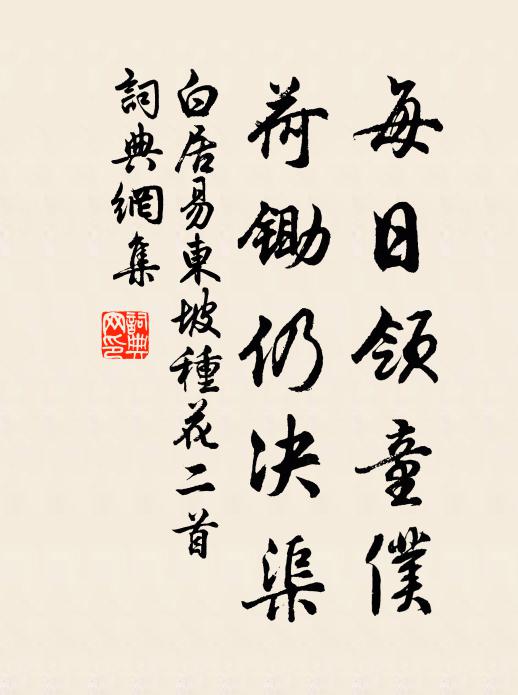 每日領童僕
荷鋤仍決渠
白居易東坡種花二首
詞典網集
詞典
网印